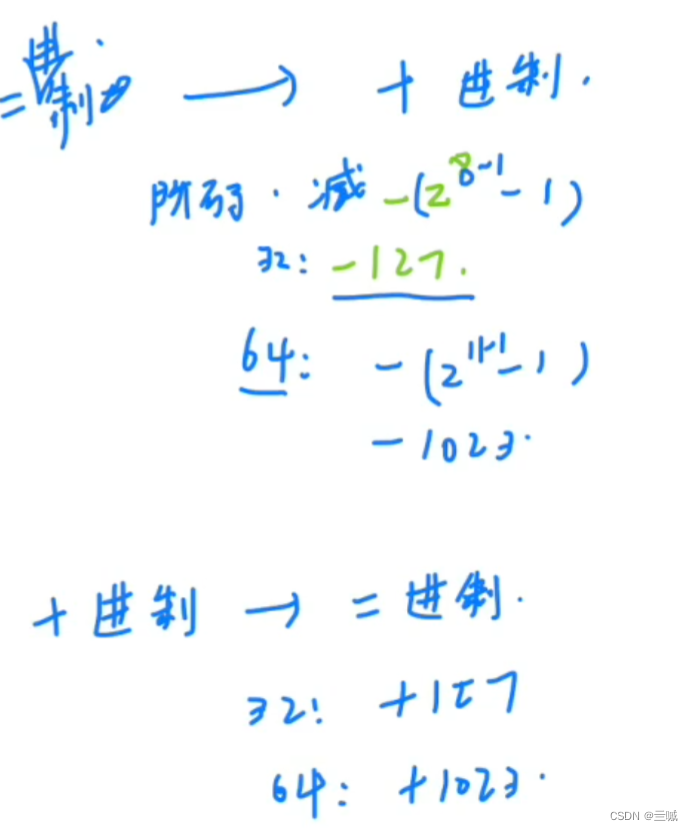 二进制 → 十进制.
阶码. 减 -(2^8-1 - 1)
32: -127.
64: -(2^11-1 - 1)
-1023.
十进制 → 二进制.
32: +127
64: +1023.
CSDN @亖戚